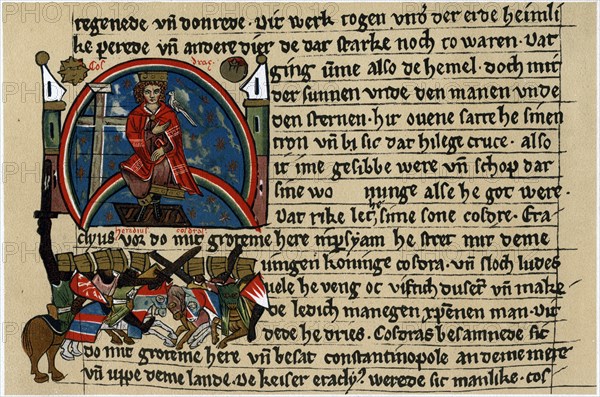 regenede vn̄ donrede. Dit werk togen vnd̓ der erde heimli
ke perede vn̄ andere dier de dar starke noch to waren. Dat
Cos dras
ging um̄e also de hemel. doch mit
der sunnen vnde den manen vnde
den sternen. hir ouene satte he sinen
tron vn̄ bi sic dat hilege cruce. also
it ime gesibbe were vn̄ schop dat
sine wo nunge alse he got were.
Dat rike let he sime sone cosdre. Era
heraclius cosdras
clius vor do mit groteme here in p̄syam he stret mit deme
uingen koninge cosdra. vn̄ sloch ludes
uele he veng oc viftich dusent vn̄ make
de ledich manegen xp̄enen man. Dit
dede he dries. Cosdras besamnede sic
do mit groteme here vn̄ besat constantinopole an deme mere
vn̄ vppe deme lande. De keiser eracl̓ werede sic manlike. Cos